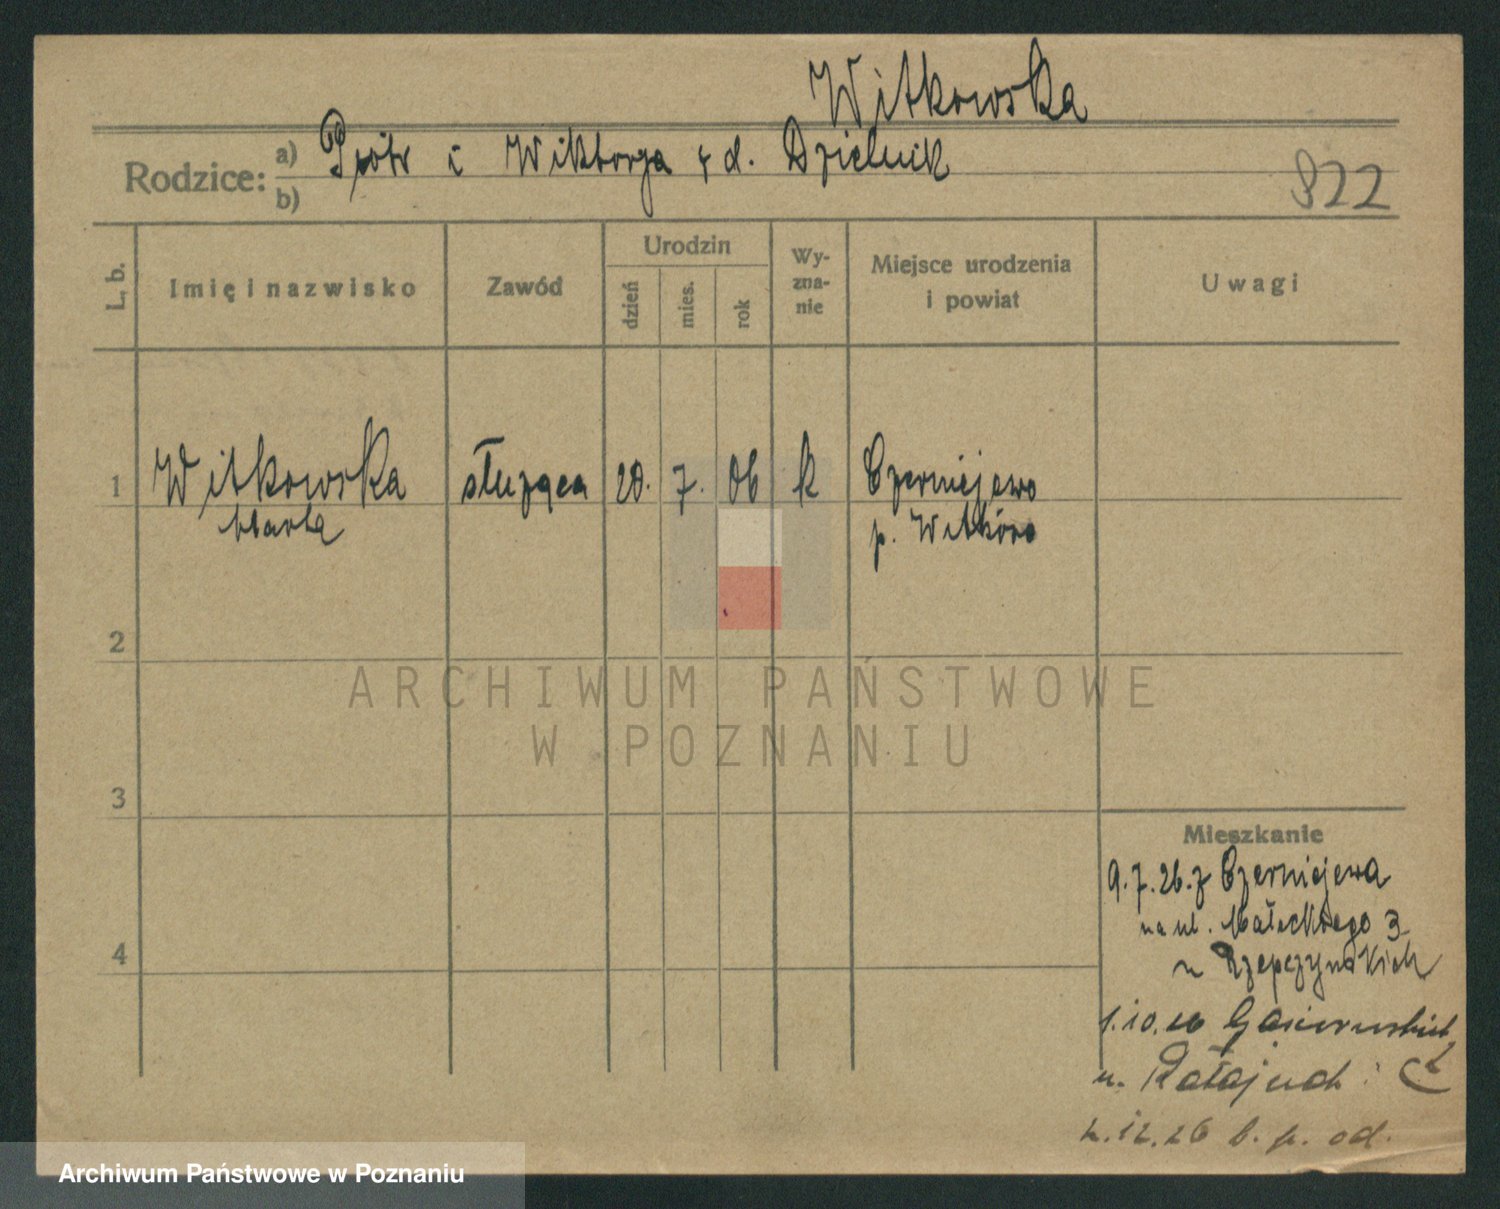 Witkowska
Rodzice: a) Piotr i Wiktorja z d. Dzielnik
b)
822
L. b. Imię i nazwisko Zawód Urodzin dzień mies. rok Wyznanie Miejsce urodzenia i powiat Uwagi
1 Witkowska służąca 20. 7. 06 k Czerniejewo
Marta p. Witkowo
2
3
4
Mieszkanie
9.7.26. z Czerniejewa
na ul. Małeckiego 3
u Rzepczyńskich
1.10.26
u. Ratajach
2.12.26 b. p. od.
ARCHIWUM PAŃSTWOWE
W POZNANIU
Archiwum Państwowe w Poznaniu